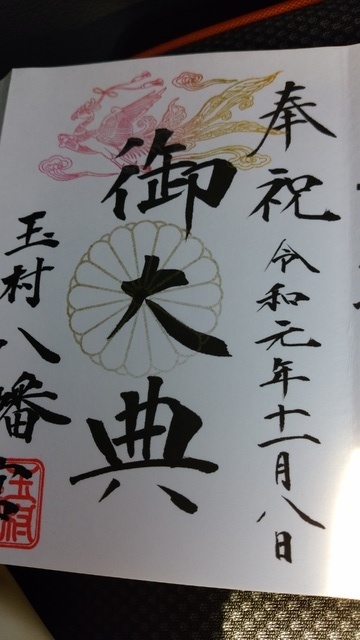 奉祝 令和元年十一月八日
御大典
玉村八幡宮